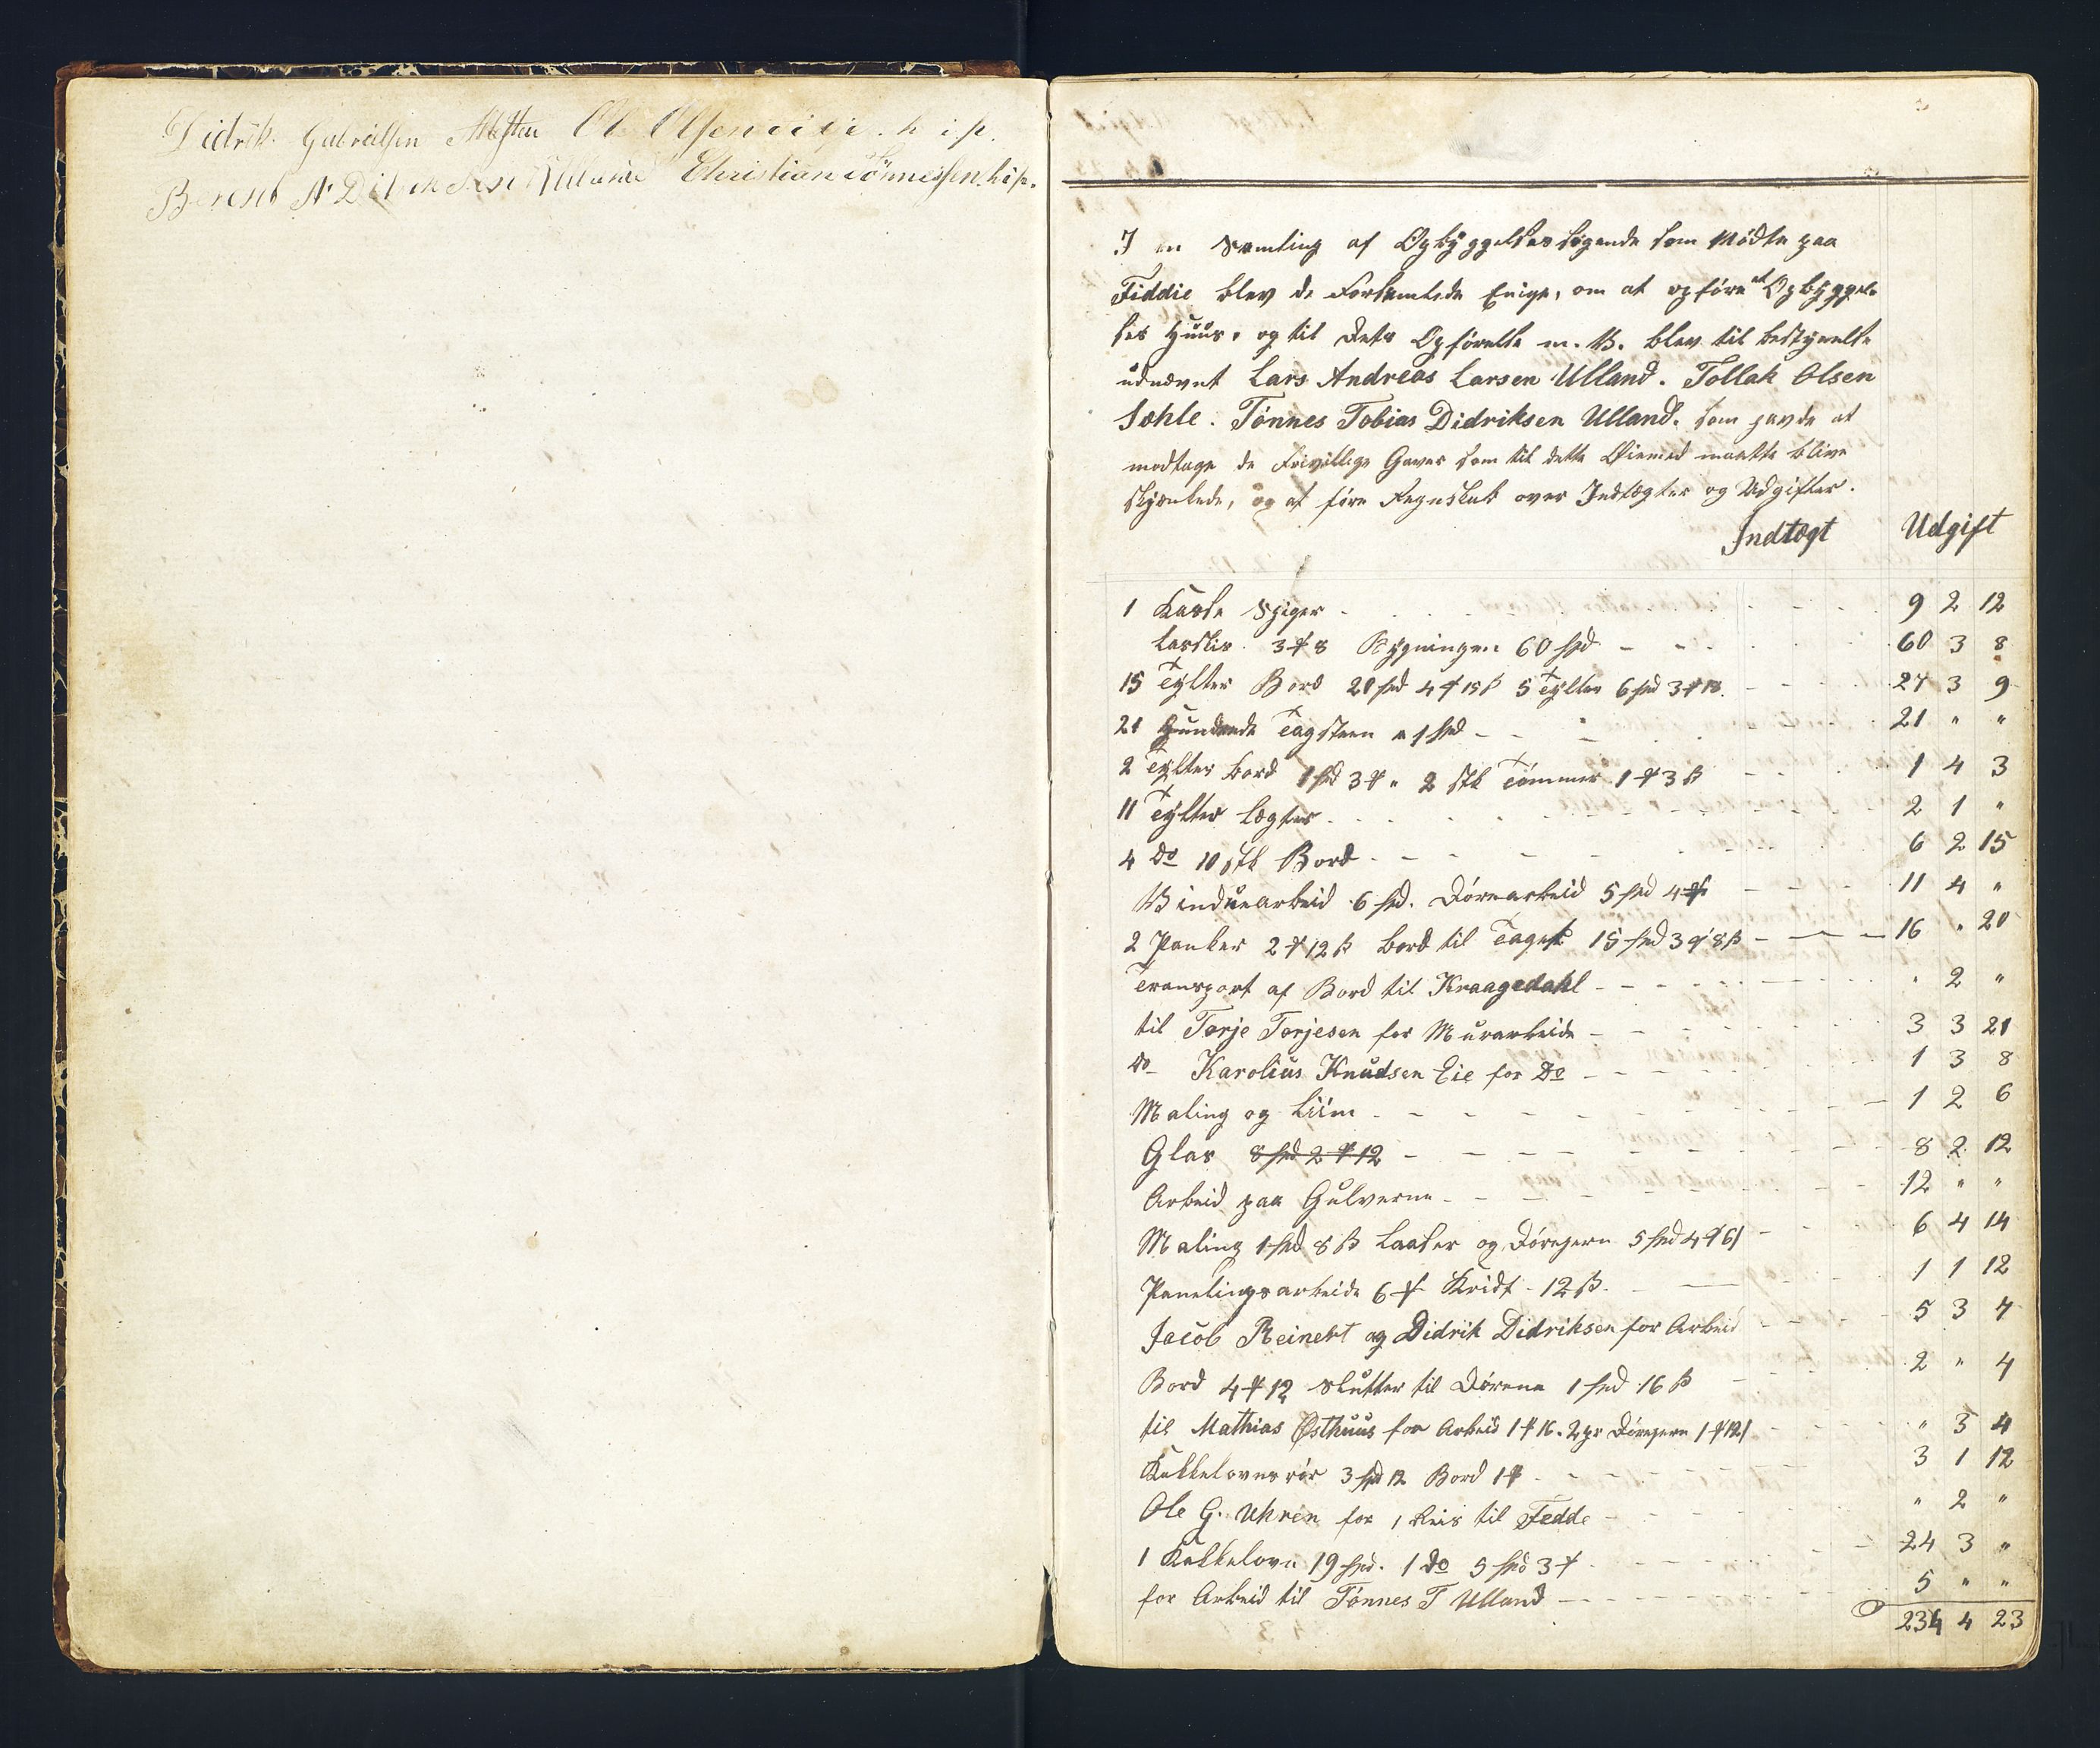 Didrik Gabrielsen Ole Olsen h. i. p.
Berent Ulland Christian Tönnessen. h. i. p.
I en Samling af Opbyggelsessøgende som Mødte paa
Fiddie blev de Forsamlede Enige, om at opføre et Opbyggel-
ses Huus, og til dets Opførelse m. V. blev til bestyrelse
udnævnt Lars Andreas Larsen Ulland. Tollak Olsen
Sæhle. Tønnes Tobias Didriksen Ulland. som havde at
modtage de Frivillige Gaver som til dette Øiemed maatte blive
skjænkede, og at føre Regnskab over Indtægter og Udgifter.
Indtægt Udgift
1 Kasse Spiger 9 2 12
3 ₰ 8 Bygningen 60 spd 60 3 8
15 Tylter Bord 21 spd 4 ₰ 15 ß 5 Tylter 6 spd 3 ₰ 18 27 3 9
21 Hundrede Tagsteen a 1 spd 21 " "
2 Tylter bord 1 spd 3 ₰ " 2 stk Tømmer 1 ₰ 3 ß 1 4 3
11 Tylter Lægter 2 1 "
4 Do 10 stk Bord 6 2 15
Vinduearbeid 6 spd. Dørearbeid 5 spd 4 ₰ 11 4 "
2 Planker 2 ₰ 12 ß bord til Taget 15 spd 3 ₰ 8 ß 16 " 20
Transport af Bord til Kraagedahl " 2 "
til Torje Torjesen for Murarbeide 3 3 21
do Karolius Knudsen Eie for Do 1 3 8
Maling og Liim 1 2 6
Glas 8 spd 2 ₰ 12 8 2 12
Arbeid paa Gulverne 12 " "
Maling 1 spd 8 ß Laaser og Dørejern 5 spd 4 ₰ 6 6 4 14
Panelingsarbeide 6 ₰ Kridt 12 ß. 1 1 12
Jacob Reinert og Didrik Didriksen for Arbeid 5 3 4
Bord 4 ₰ 12 Slutter til Dørene 1 spd 16 ß 2 " 4
til Mathias Østhuus for Arbeid 1 ₰ 16. 2 pr Dørejern 1 ₰ 12 " 3 4
Kakkelovnsrør 3 spd 12 Bord 1 ₰ 3 1 12
Ole G. Uhren for 1 Reis til Fedde " 2 "
1 Kakkelovn 19 spd. 1 do 5 spd 3 ₰ 24 3 "
for Arbeid til Tønnes T Ulland 5 " "
234 4 23